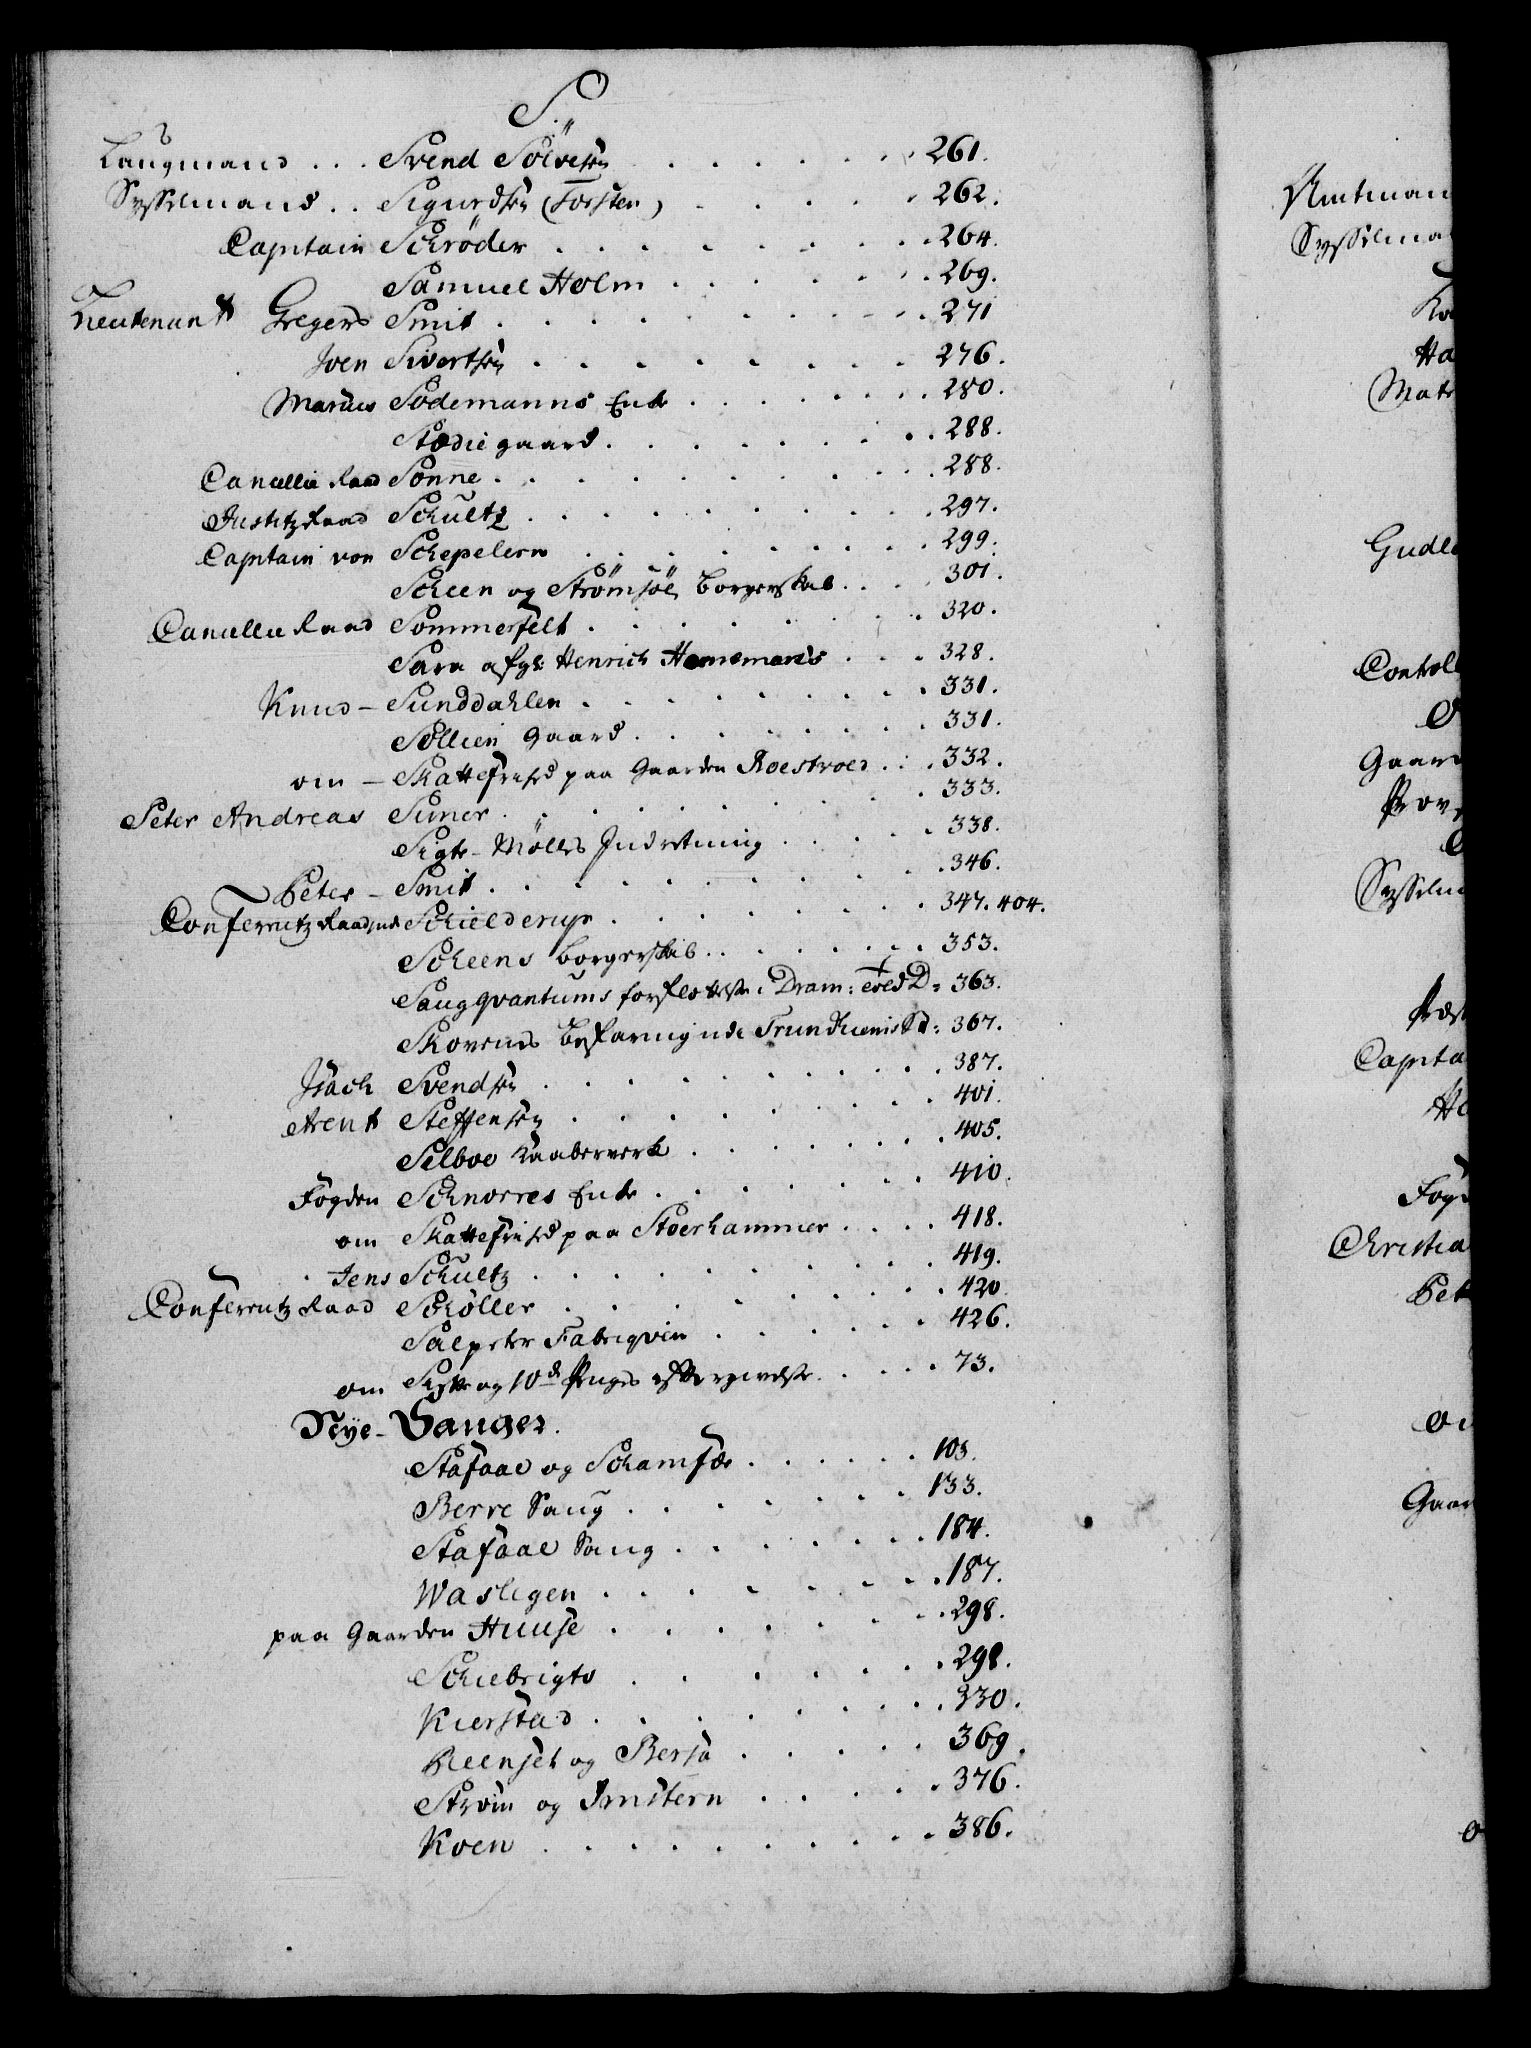 S.
Laugmand . . . Svend Sölvesen . . . . . . . 261.
Sysselmand . . Sigurdsen (Torsten) . . . . . 262.
Captain Schröder . . . . . . . . 264.
Samuel Holm . . . . . . 269.
Lieutenant Gregers Smit . . . . . . . . . 271
Joen Sivertsen . . . . . . . . 276.
Marcus Sodemanns Enke . . . . . . 280.
Stædie gaard . . . . . . . 288.
Cancellie Raad Sonne . . . . . . . . . 288.
Justitz Raad Schultz . . . . . . . . 297.
Captain von Schepelern . . . . . . . . 299.
Scheen og Strömsöe Borgerskab . . . 301.
Cancellie Raad Sommerfelt . . . . . . . . 320.
Sara afg: Henrich Hornemans . . . 328.
Knud - Sunddahlen . . . . . . . 331.
Sollien gaard . . . . . . . 331.
om - Skattefrihed paa Gaarden Roestvoed . . . 332.
Peter Andreas Suner . . . . . . . . 333.
Sigte - Mölles Indretning . . . . . 338.
Peter - Smit . . . . . . . . . 346.
Conferentz Raadinde Schielderup . . . . . . . . 347. 404.
Scheens Borgerskab . . . . . . . 353.
Saugqvantums forflottelse i Dram: Told D= 363.
Skovenes Befaring udi Trundhiems St: 367.
Isach Svendsen . . . . . . . . . 387.
Arent Steffensen . . . . . . . . 401.
Selboe Kaaberverk . . . . . . . 405.
Fogden Schnorres Enke . . . . . . . 410.
om Skattefrihed paa Stoerhammer . . . . 418.
Jens Schultz . . . . . . . . . 419.
Conferentz Raad Schöller . . . . . . . . 420.
Salpeter Fabriqven . . . . . . 426.
om Siette og 10de Penges eftergivelse . . . . 73.
Nye - Sauger.
Stafaae og Schamfær . . . . . . 103.
Berre Saug . . . . . . . 133.
Stafaae Saug . . . . . . . 184.
Wasligen . . . . . . . . 187.
paa Gaarden Huuse . . . . . . . 298.
Schiebrigto . . . . . . . 298.
Kierstad . . . . . . . . 330.
Reenset og Bersa . . . . . 369.
Ström og Imstern . . . . . 376.
Koen . . . . . . . . . 386.
Amtman
Sysselma
Ha
Gudl
Controll
Gaar
Sysselm
Capita
Fog
Christia
Pet
Gaar